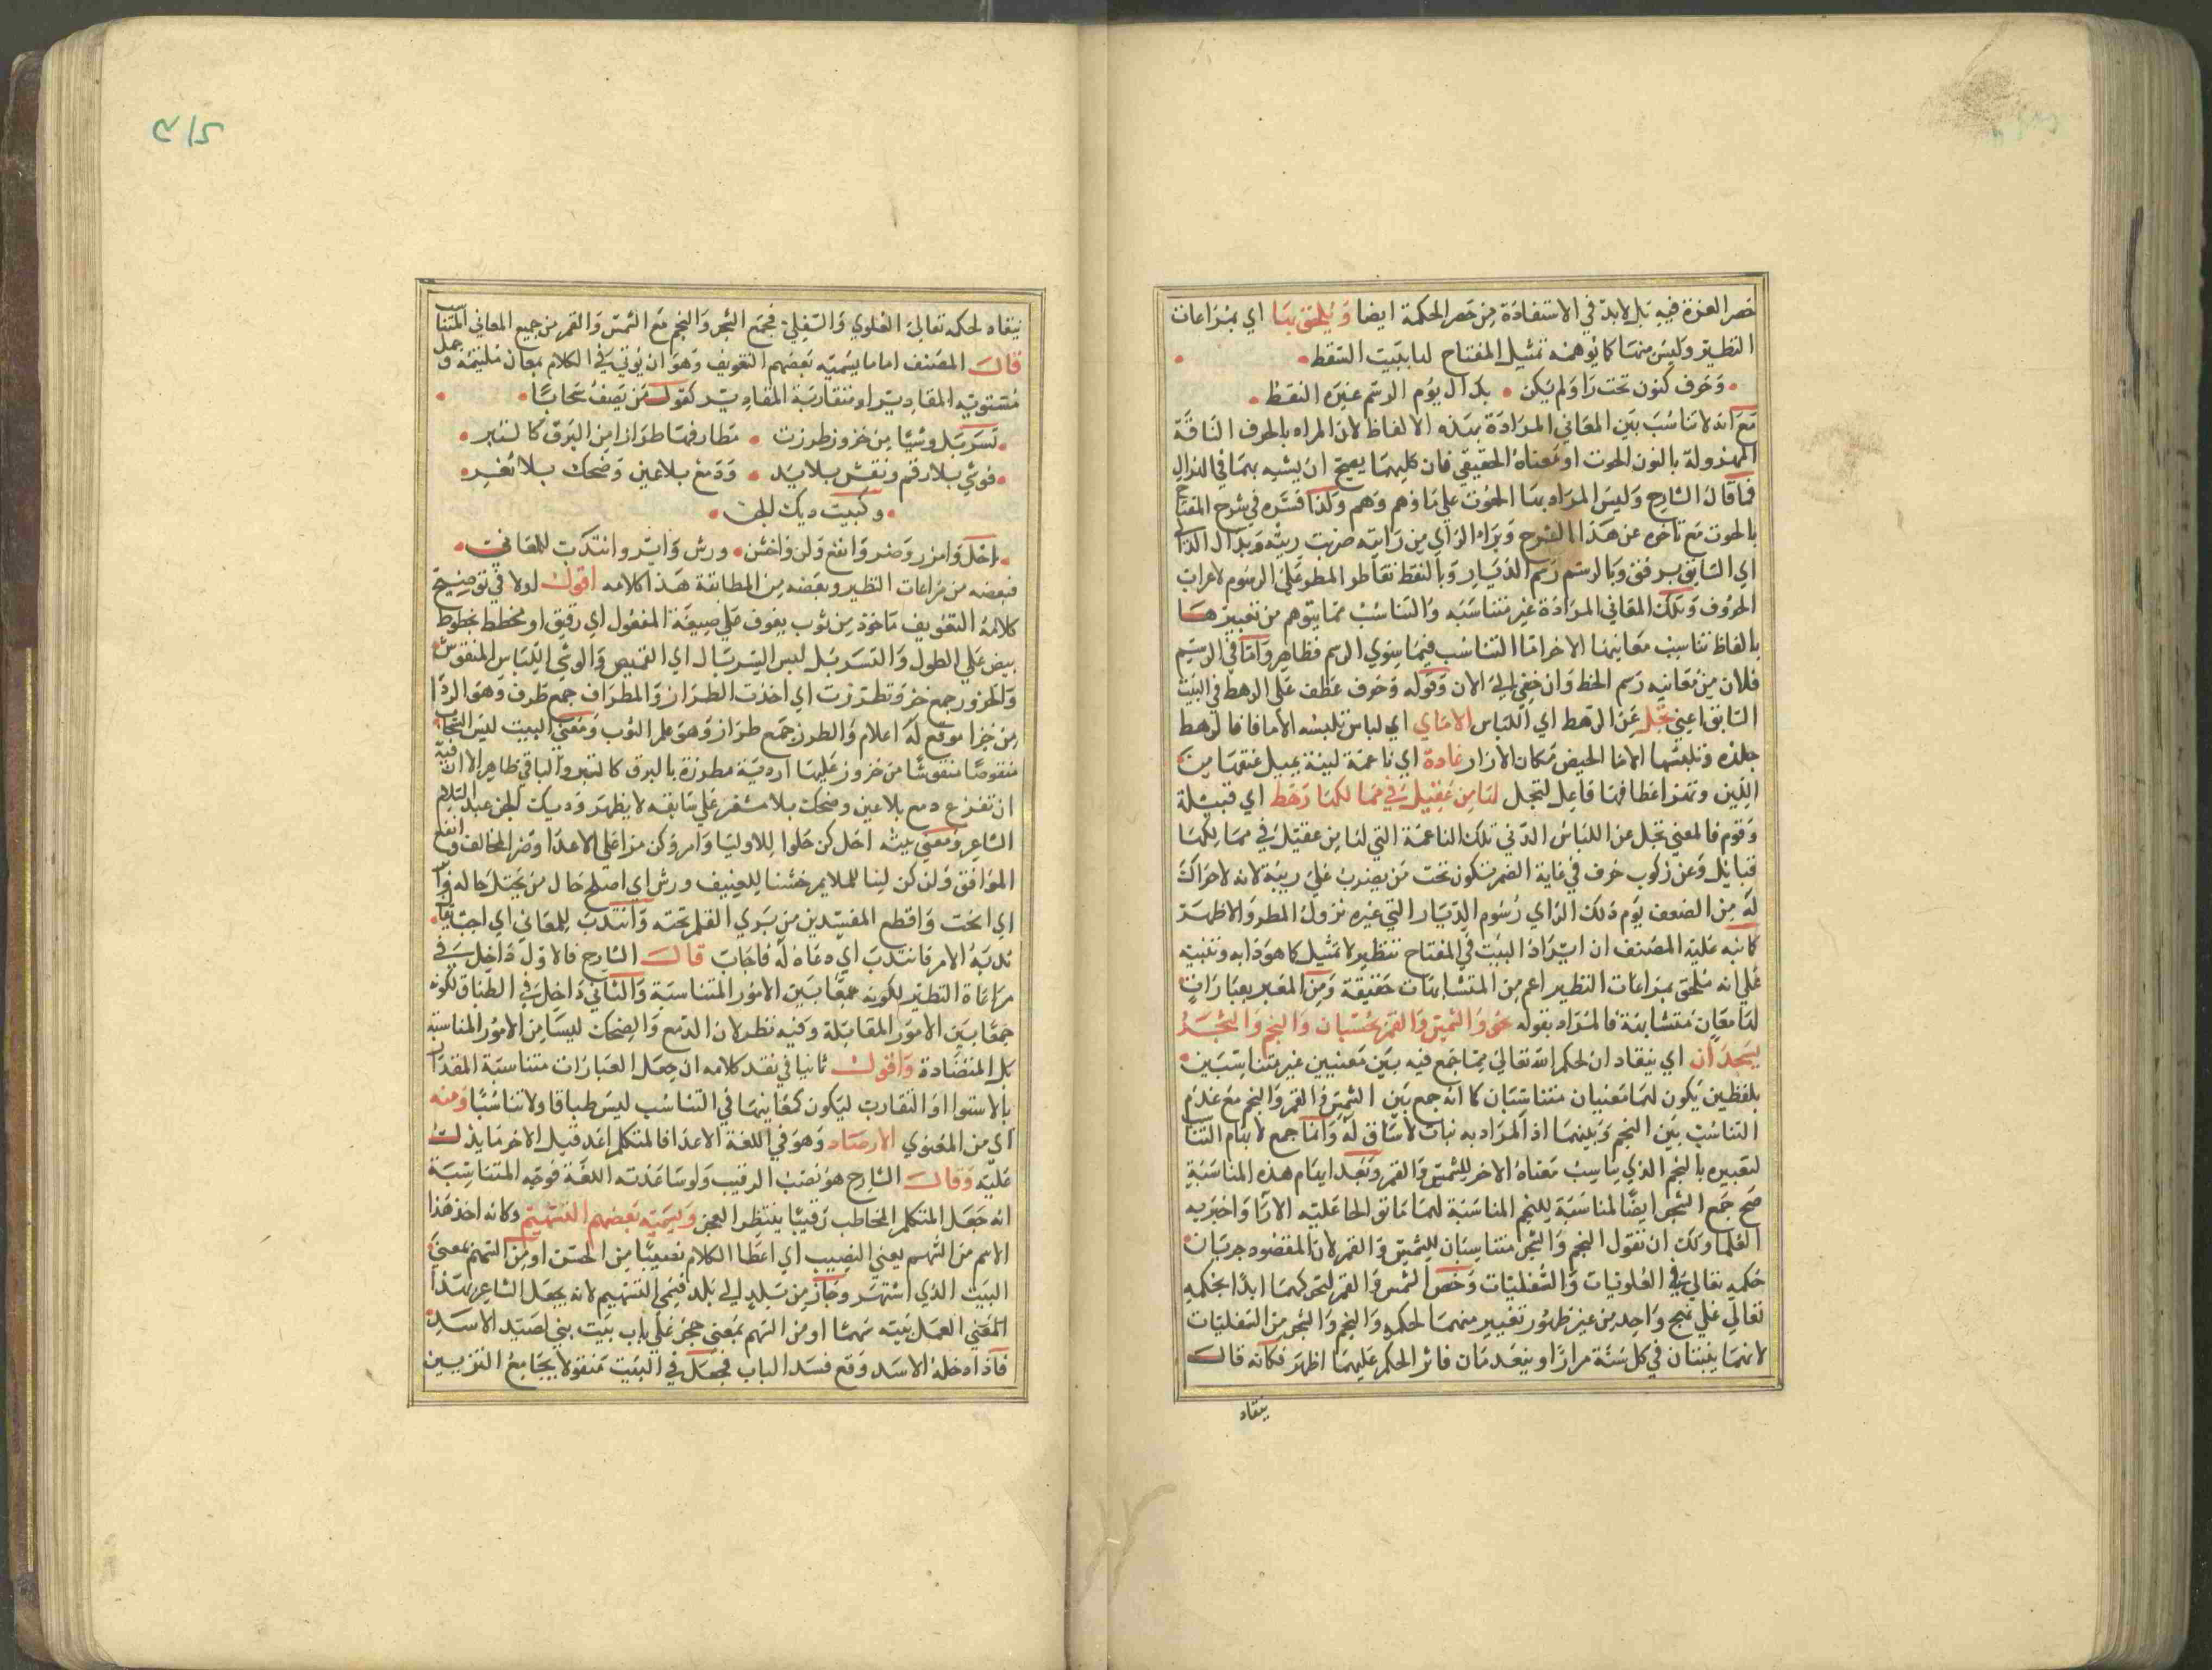 حصر العزة فيه بل لابد في الاستفادة من حصر الحكمة ايضا ويلحق بها اي بمراعات
النظير وليس منها كما توهمه تمثيل المفتاح لها ببيت السقط
وحرف كنون تحت را ولم يكن بدال يوم الرسم غيره النقط
مع انه لا تناسب بين المعاني المرادة بهذه الالفاظ لان المراد بالحرف الناقة
المهزولة بالنون الحوت او معناه الحقيقي فان كليهما يصح ان يشبه بهما في الهزال
فما قال الشارح وليس المراد بها الحوت علي ما وهم وهم ولذا فسره في شرح المفتاح
بالحوت مع تاخره عن هذا الشرح وبراء الراي من رايته ضربت ريته وبدال الدا
اي السابق برفق وبالرسم رسم الديار وبالنقط تقاطر المطر علي الرسوم لاعراب
الحروف وتلك المعاني المرادة غير متناسبه والتناسب مما يتوهم من تعبيرها
بالفاظ تناسب معانيها الاخر اما التناسب فيما سوي الرسم فظاهر واما في الرسم
فلان من معانيه رسم الخط وان خفي الي الان وقوله وحرف عطف علي الرهط في البيت
السابق اعني تجل عن الرهط اي اللباس الاماي اي لباس تلبسه الاما فالرهط
جلد وتلبسها الاما الحيض مكان الازار غادة اي ناعمة لينة يميل عنقها من
اللين وتهز اعطافها فاعل لتجل لها من عقيل في ممالكها رهط اي قبيلة
وقوم فالمعني تجل عن اللباس الدني تلك الناعمة التي لها من عقيل في ممالكها
قبايل وعن ركوب حرف في غاية الضمر تكون تحت من يضرب علي ريته لانه لا حراك
له من الضعف يوم ذلك الراي رسوم الديار التي غيره نزول المطر والاظهر
كما نبه عليه المصنف ان ايراد البيت في المفتاح تنظير لا تمثيل كما هو دابه ونبه
علي انه ملحق بمراعات النظير اعم من المتشابهات حقيقة ومن المعبر بعبارات
لها معان متشابهة فالمراد بقوله نحو والشمس والقمر بحسبان والنجم والشجر
يسجدان اي ينقادان لحكم الله تعالي مما جمع فيه بين معنيين غير متناسبين
بلفظين يكون لهما معنيان متناسبان كما انه جمع بين الشمس والقمر والنجم مع عدم
التناسب بين النجم وبينهما اذ المراد به نبات لا ساق له وانما جمع لايهام التناسب
لتعبيره بالنجم الذي يناسب معناه الاخر للشمس والقمر وبعد ايهام هذه المناسبة
صح جمع الشجر ايضا لمناسبة للنجم المناسبة لهما
العلما ولك ان تقول النجم والشجر متناسبان للشمس والقمر لان المقصود جريان
حكمه تعالي في العلويات والسفليات وخص الشمس والقمر لتحركهما ابدا بحكمه
تعالي علي نهج واحد من غير ظهور تغيير منهما لحكمه والنجم والشجر من السفليات
لانهما ينبتان في كل سنة مرارا وينعدمان فاثر الحكم عليهما اظهر فكانه قال
ينقاد
ينقاد لحكمه تعالي العلوي والسفلي فجمع الشجر والنجم مع الشمس والقمر من جميع المعاني المتناسب
قال المصنف اما ما يسميه بعضهم التفويف وهو ان يؤتي في الكلام بمعان ملتئمة وجمل
مستوية المقادير او متقاربة المقادير كقول من يصف سحابا
تسربل وشيا من خزوز تطرزت مطارفها طرازا من البرق كالتبر
فوشي بلا رقم ونقش بلا يد ودمع بلا عين وضحك بلا ثغر
وكبيت ديك الجن
احل وامرر وضر وانفع ولن واخشن ورش وابر وانتدب للمعالي
فبعضه من مراعات النظير وبعضه من المطابقة هذا كلامه اقول اولا في توضيح
كلامه التفويف ماخوذ من ثوب يفوف علي صيغة المفعول اي رقيق او مخطط بخطوط
بيض علي الطول والتسربل لبس السربال اي القميص والوشي اللباس المنقوش
والخزوز جمع خز وتطرزت اي اخذت الطراز والمطراف جمع طرف وهو الردا
من خز امربع له اعلام والطرز جمع طراز وهو علم الثوب ومعني البيت لبس السحاب
منقوشا من خزوز عليها اردية مطرزة بالبرق كالتبر والباقي ظاهر الا ان فيه
ان تفرع دمع بلا عين وضحك بلا ثغر علي سابقه لا يظهر وديك الجن عبد السلام
الشاعر ومعني بيته احل كن حلوا للاوليا وامرر كن مرا علي الاعدا وضر المخالف وانفع
الموافق ولن كن لينا للملايم خشنا للعنيف ورش اي اصلح حال من يختل حاله وابر
اي انحت واقطع المفسدين من بري القلم نحته وانتدب للمعالي اي اجب يقال
ندبه الامر فانتدب اي دعاه له فاجاب قال الشارح فالاول داخل في
مراعاة النظير لكونه جمعا بين الامور المتناسبة والثاني داخل في الطباق لكونه
جمعا بين الامور المقابلة وفيه نظر لان الدمع والضحك ليسا من الامور المناسبة
بل المتضادة واقول ثانيا في نقد كلامه ان جعل العبارات متناسبة المقدار
بالاستوا او التقارب ليكون كمعانيها في التناسب ليس طباقا ولا تناسبا ومنه
اي من المعنوي الارصاد وهو في اللغة الاعداد فالمتكلم اعد قبل الاخر ما يدل
عليه وقال الشارح هو نصب الرقيب ولو ساعدته اللغة فوجه المتناسبة
انه جعل المتكلم المخاطب رقيبا ينتظر العجز ويسميه بعضهم التسهيم وكانه اخذ هذا
الاسم من السهم يعني النصيب اي اعطا الكلام نصيبا من الحسن او من السهم بمعني
البيت الذي اشتهر وجاز من بلد الي بلد فسمي التسهيم لانه يجعل الشاعر بهذا
المعني العمل بيته سهما او من السهم بمعني حجر علي باب بيت بني لصيد الاسد
فاذا دخله الاسد وقع فسد الباب فجعل في البيت منقولا بجامع التزيين